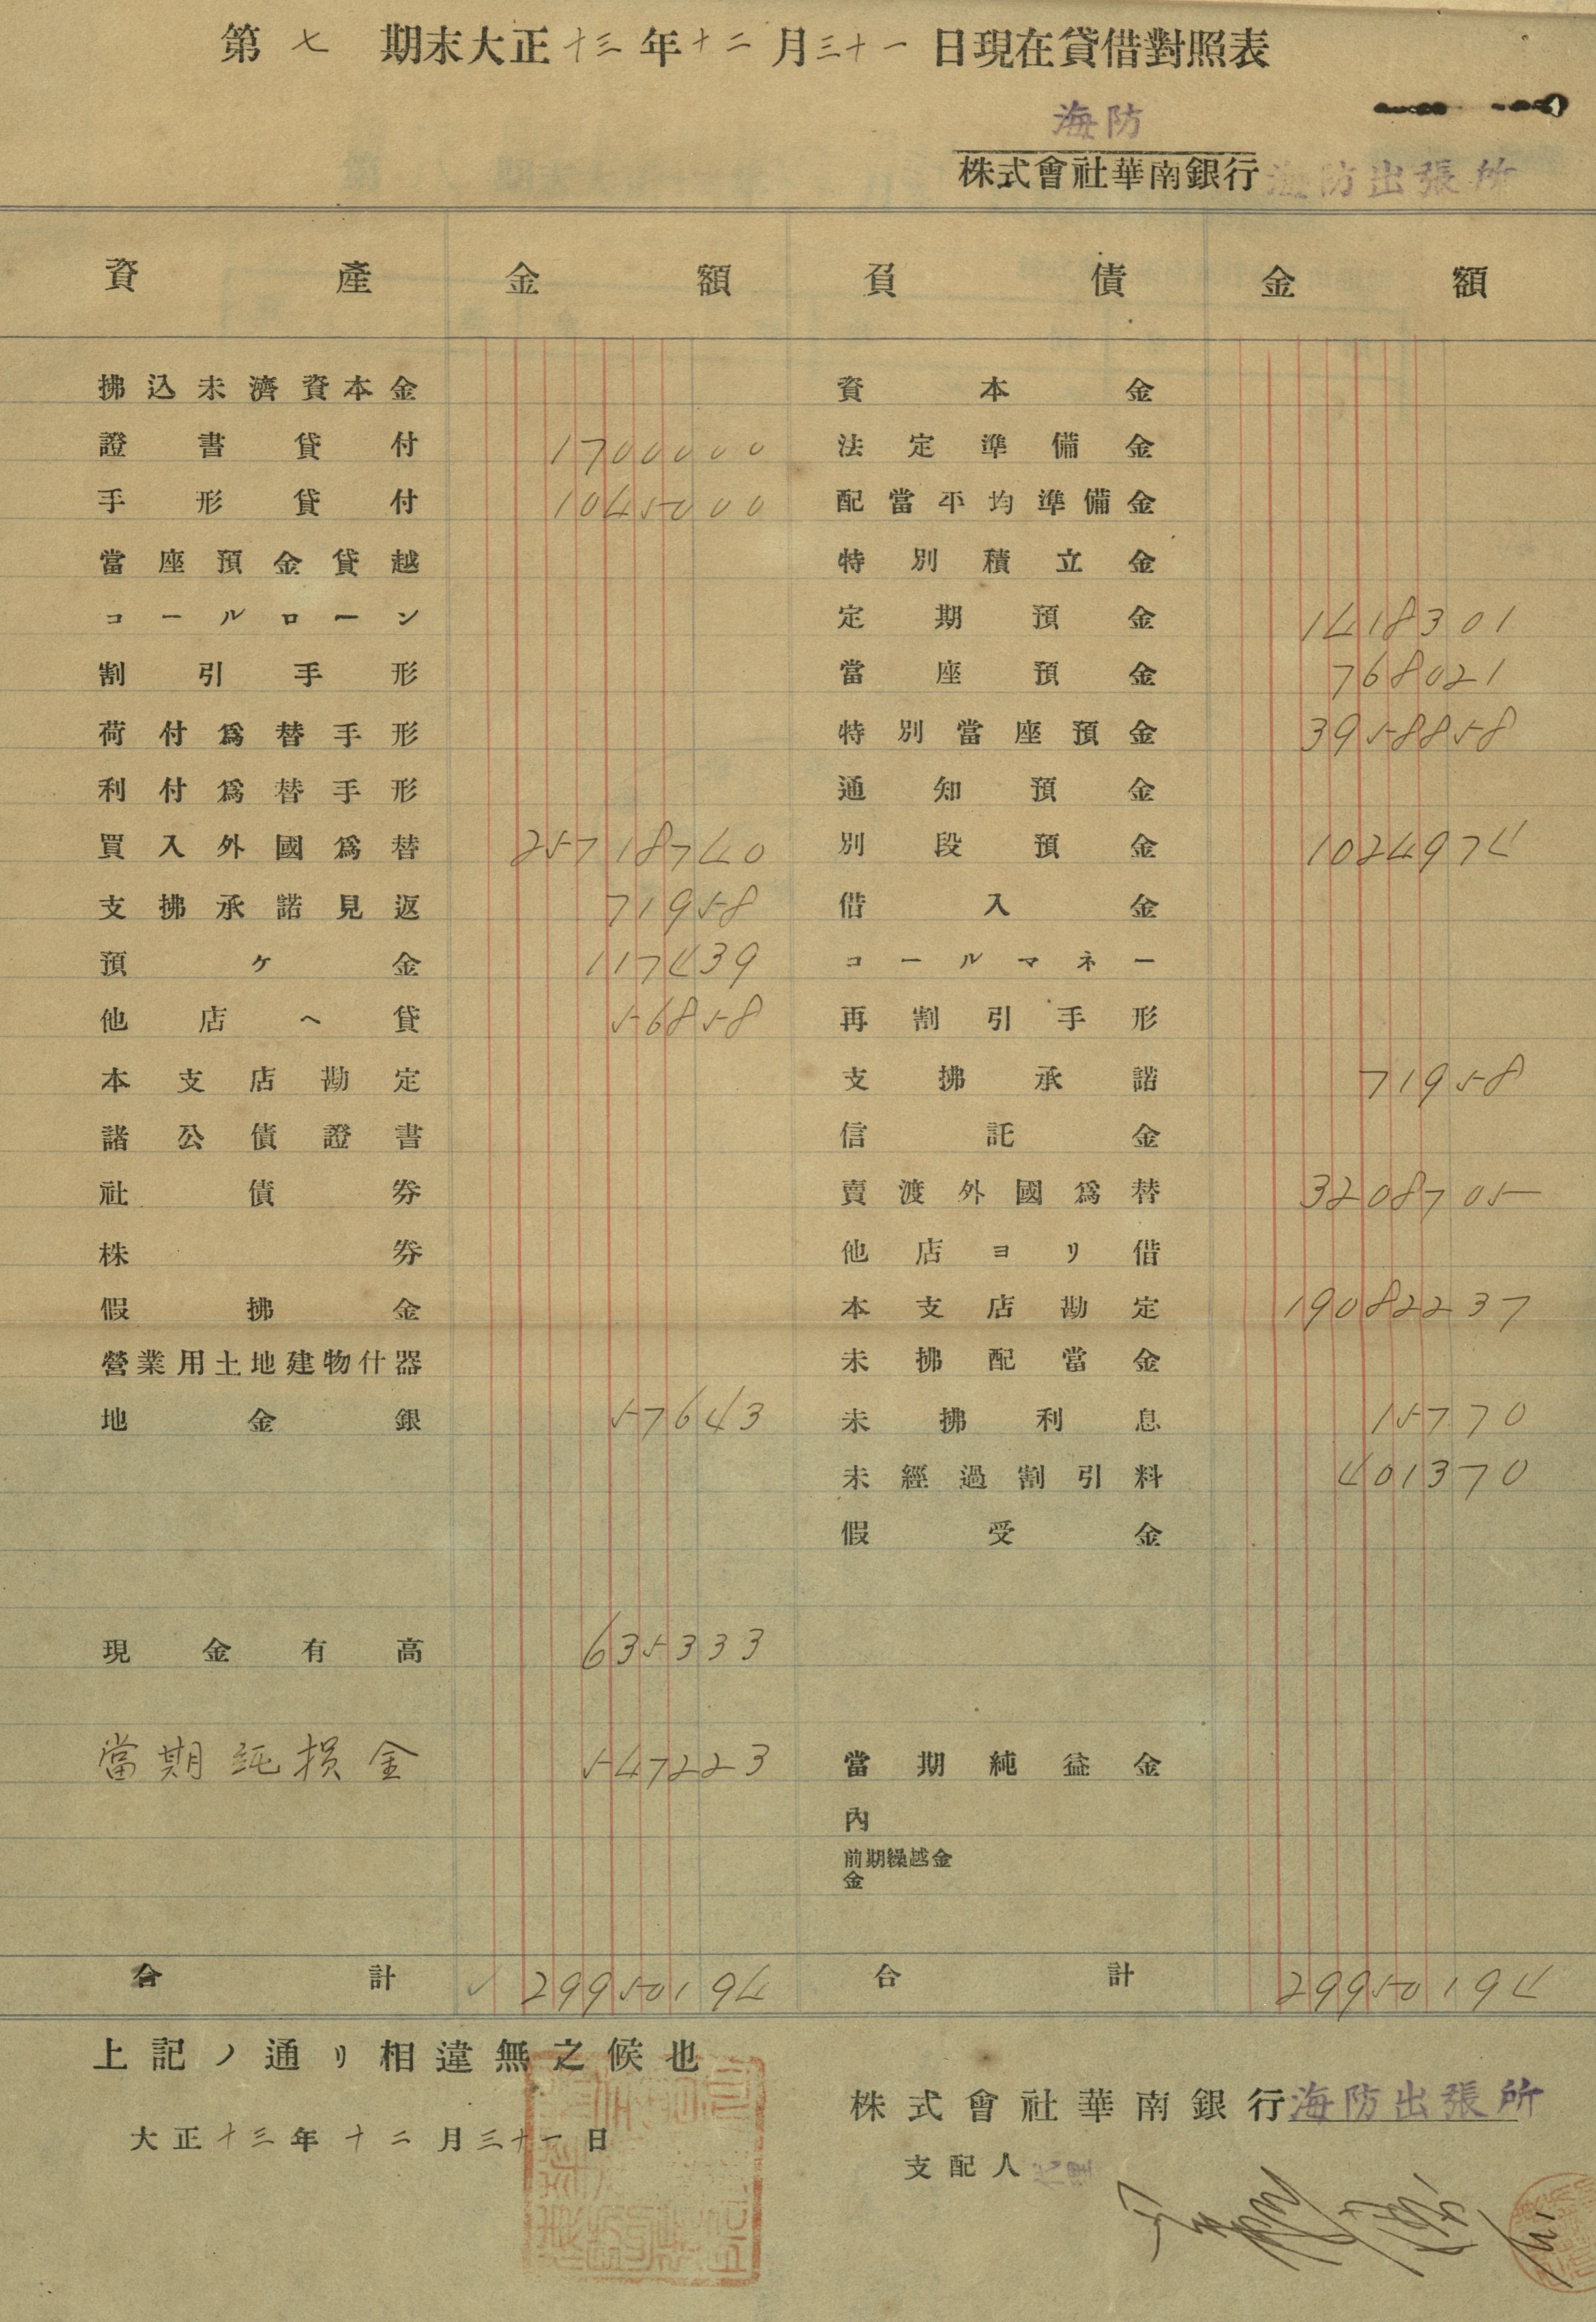 第七期末大正十三年十二月三十一日現在貸借對照表
海防
株式會社華南銀行海防出張所
資產 金額 負債 金額
拂込未濟資本金 資本金
證書貸付 1700000 法定準備金
手形貸付 1045000 配當平均準備金
當座預金貸越 特別積立金
コールローン 定期預金 1418301
割引手形 當座預金 768021
荷付爲替手形 特別當座預金 3958858
利付爲替手形 通知預金
買入外國爲替 25718740 別段預金 1024974
支拂承諾見返 71958 借入金
預ケ金 117439 コールマネー
他店へ貸 56858 再割引手形
本支店勘定 支拂承諾 71958
諸公債證書 信託金
社債券 賣渡外國爲替 3208705
株券 他店ヨリ借
假拂金 本支店勘定 19082237
營業用土地建物什器 未拂配當金
地金銀 57643 未拂利息 15770
未經過割引料 401370
假受金
現金有高 635333
當期純損金 547223 當期純益金
內
前期繰越金
金
合計 29950194 合計 29950194
上記ノ通リ相違無之候也
株式會社華南銀行海防出張所
大正十三年十二月三十一日
支配人